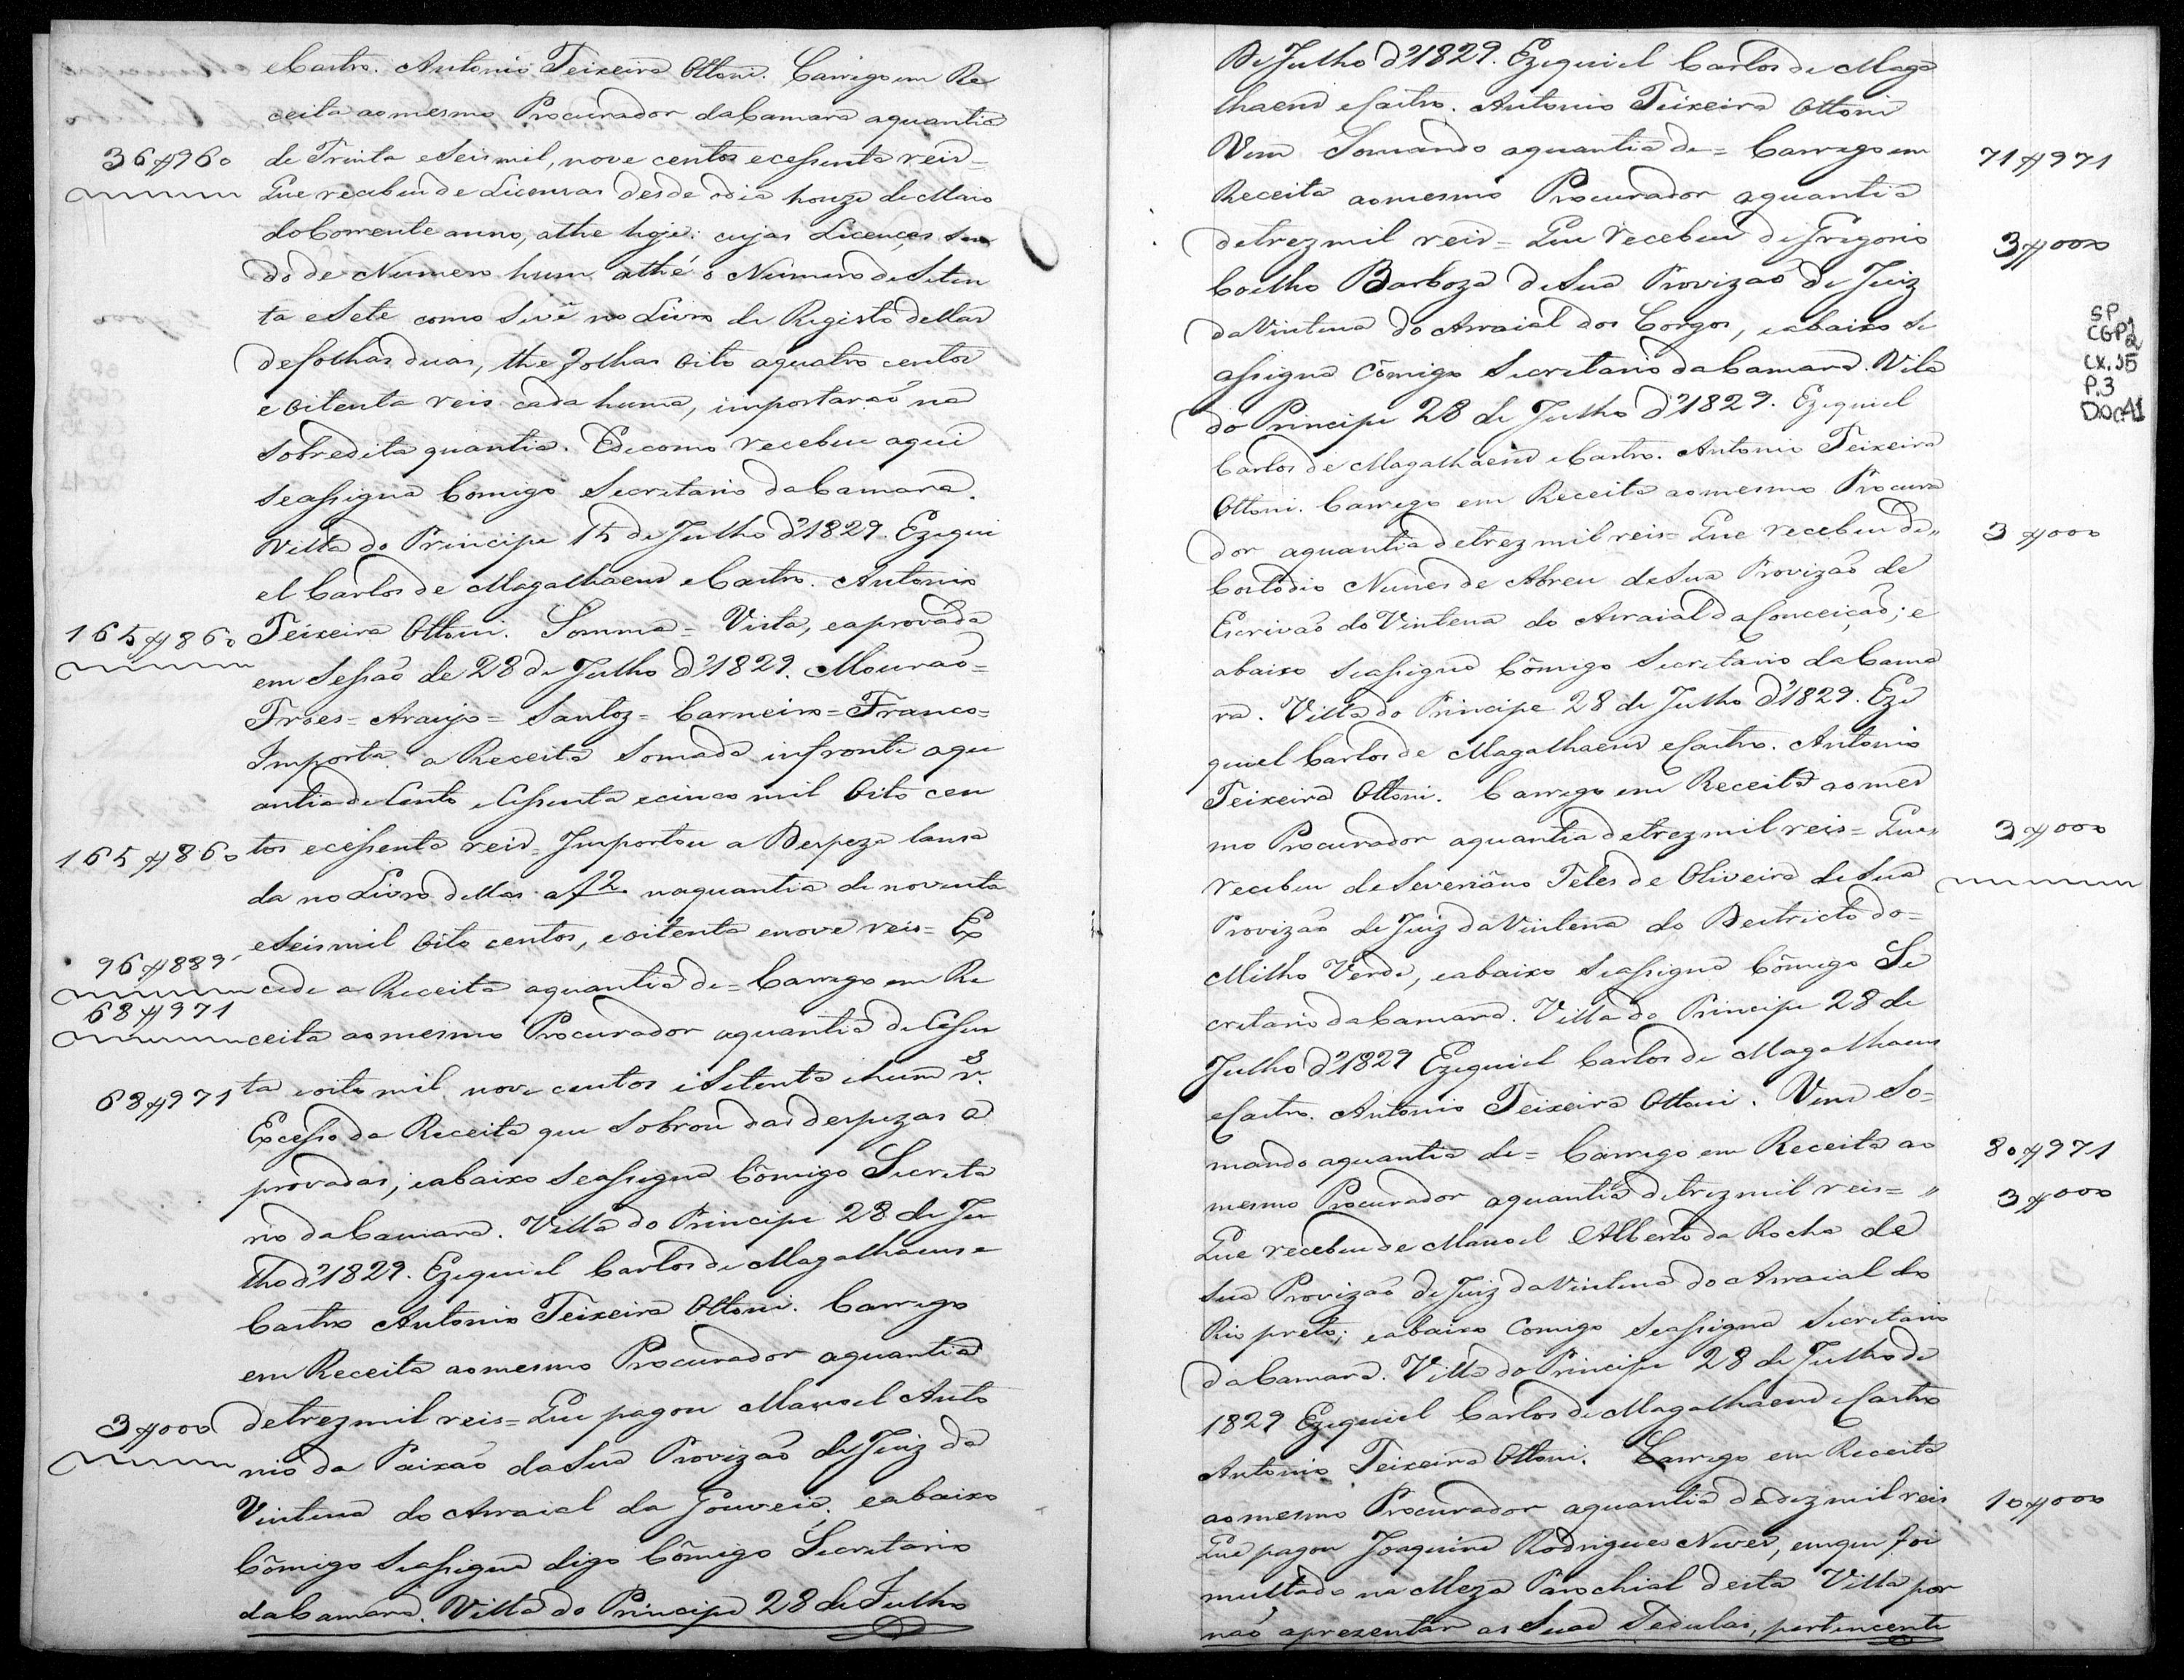 eCastro. Antonio Teixeira Ottoni. Carrego em Re
ceita ao mesmo Procurador da Camara aquantia
36$960 de Trinta eSeis mil, nove centos ecessenta reis=
Que recebeu de Licensas desde o dia honze de Maio
do Corrente anno, athe hoje: cujas Licenças sen
do de Numero hum athé o Numero de Seten
ta eSete como Sevê no Livro de Registo dellas
defolhas duas, the folhas oito aquatro centos
e oitenta reis cada huma, importarão na
Sobredita quantia. Edecomo recebeu aqui
Seassigna Comigo Secretario da Camara.
Villa do Principe 15 de Julho d'1829. Ezequi
el Carlos de Magalhaens eCastro. Antonio
165$860 Teixeira Ottoni. Somma= Vista, eaprovada
em Sessão de 28 de Julho d'1829. Mourão=
Froes= Araujo= Santoz= Carneiro= Franco=
Importa a Receita Somada infronte aqu
antia de Cento eCessenta ecinco mil oito cen
165$860 tos ecessenta reis= Importou a Despeza lansa
da no Livro dellas af2. naquantia de noventa
eSeis mil oito centos, eoitenta enove reis= Ex
96$889
cede a Receita aquantia de= Carrego em Re
68$971
ceita ao mesmo Procurador aquantia de Cessen
68$971 ta eoito mil nove centos eSetenta ehum rs.
Excesso da Receita que Sobrou das despezas a
provadas, eabaixo Seassigna Cômigo Secreta
rio da Camara. Villa do Principe 28 de Ju
lho d'1829. Ezequiel Carlos de Magalhaens e
Castro Antonio Teixeira Ottoni. Carrego
em Receita ao mesmo Procurador aquantia
3$000 detrez mil reis= Que pagou Manoel Anto
nio da Paixão da Sua Provizão de Juiz da
Vintena do Arraial da Gouveia, eabaixo
Cômigo Seassigna digo Cômigo Secretario
da Camara. Villa do Principe 28 de Julho
De Julho d'1829. Ezequiel Carlos de Maga
lhaens eCastro. Antonio Teixeira Ottoni
Vem Somando aquantia de= Carrego em 71$971
Receita ao mesmo Procurador aquantia
detrez mil reis= Que recebeu de Gregorio 3$000
Coelho Barboza de Sua Provizão de Juiz
da Vintena do Arraial dos Corgos, eabaixo Se
assigna Cômigo Secretario da Camara. Vila
do Principe 28 de Julho d'1829. Ezequiel
Carlos de Magalhaens eCastro. Antonio Teixeira
Ottoni. Carrego em Receita ao mesmo Procura
dor aquantia detrez mil reis= Que recebeu de,, 3$000
Costodio Nunes de Abreu de Sua Provizão de
Escrivão da Vintena do Arraial da Conceição; e
abaixo Seassigna Cômigo Secretario da Cama
ra. Villa do Principe 28 de Julho d'1829. Eze
quiel Carlos de Magalhaens eCastro. Antonio
Teixeira Ottoni. Carrego em Receita ao mes
mo Procurador aquantia detrez mil reis= Que,, 3$000
recebeu de Severiâno Teles de Oliveira de Sua
Provizão de Juiz da Vintena do Destricto do=
Milho Verde, eabaixo Seassigna Cômigo Se
cretario da Camara. Villa do Principe 28 de
Julho d'1829 Ezequiel Carlos de Magalhaens
eCastro. Antonio Teixeira Ottoni. Vem So=
mando aquantia de= Carrego em Receita ao 80$971
mesmo Procurador aquantia detrez mil reis= ,, 3$000
Que recebeu de Manoel Alberto da Rocha de
Sua Provizão de Juiz da Vintena do Arraial do
Rio preto; eabaixo Comigo Seassigna Secretario
da Camara. Villa do Principe 28 de Julho de
1829 Ezequiel Carlos de Magalhaens eCastro
Antonio Teixeira Ottoni. Carrego em Receita
ao mesmo Procurador aquantia dedez mil reis 10$000
Que pagou Joaquim Rodrigues Neves, emque foi
multado na Meza Parochial desta Villa por
não aprezentar as Suas Sedulas, pertencente
SP
CGP2
CX.35
P.3
DOC.41